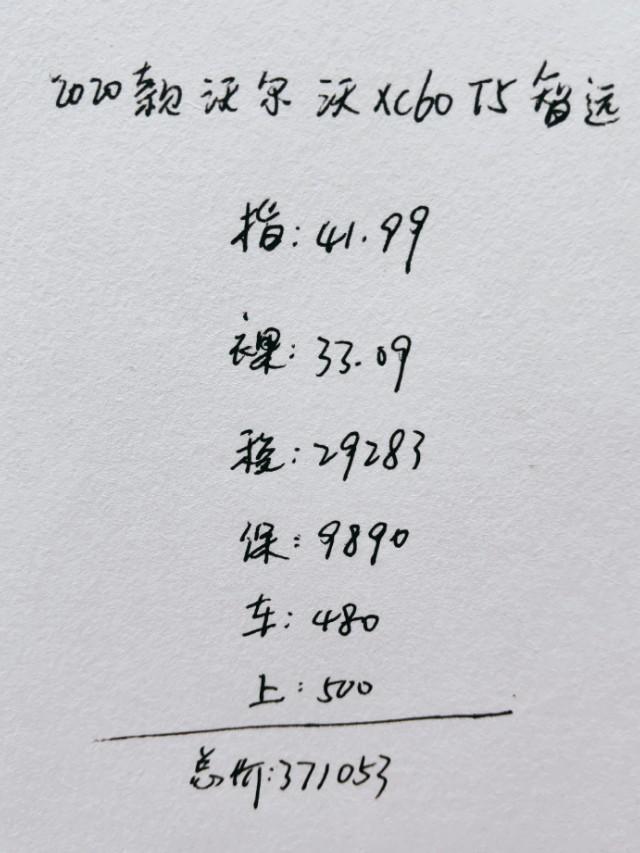 2020款沃尔沃XC60 T5智远
指:41.99
裸:33.09
税:29283
保:9890
车:480
上:500
总价:371053